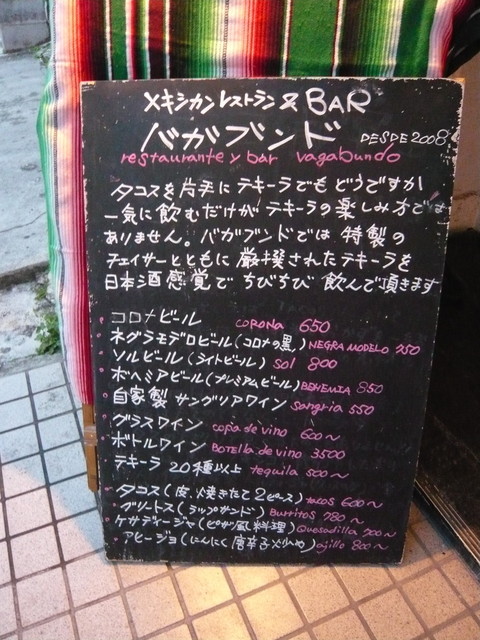 メキシカンレストラン & BAR
バガブンド DESDE 2008
restaurante y bar vagabundo
タコスを片手にテキーラでもどうですか
一気に飲むだけがテキーラの楽しみ方では
ありません。バガブンドでは特製の
チェイサーとともに厳撰されたテキーラを
日本酒感覚でちびちび飲んで頂きます
コロナビール CORONA 650
ネグラモデロビール(コロナの黒) NEGRA MODELO 750
ソルビール(ライトビール) Sol 800
ボヘミアビール(プレミアムビール) BOHEMIA 850
自家製サングリアワイン Sangria 550
グラスワイン copa de vino 600〜
ボトルワイン Botella de vino 3500
テキーラ 20種以上 tequila 500〜
タコス(皮、焼きたて2ピース) tacos 600〜
ブリートス(ラップサンド) Burritos 780〜
ケサディージャ(ピザ風料理) Quesadilla 700〜
アヒージョ(にんにく唐辛子炒め) ajillo 800〜